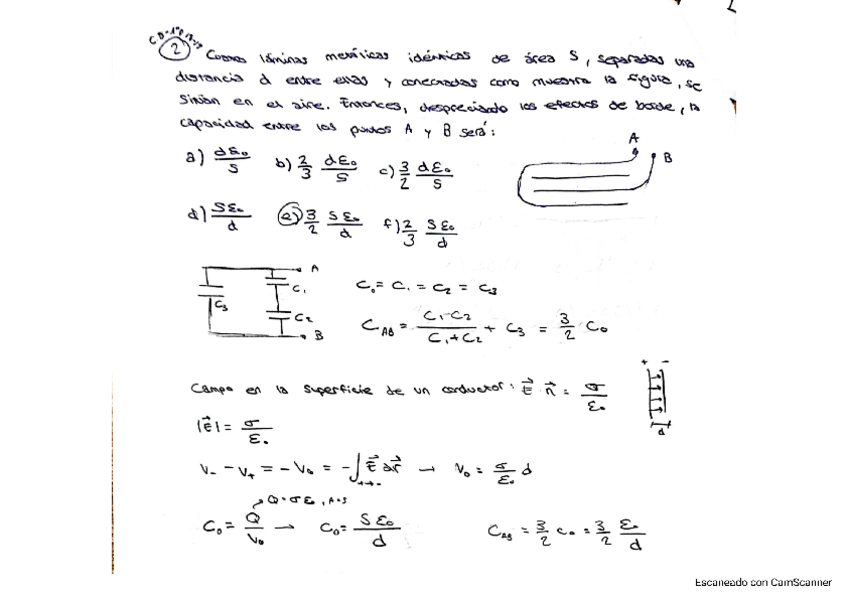 CD-1ºP 17-18
2 Cuatro láminas metálicas idénticas de área S, separadas una
distancia d entre ellas y conectadas como muestra la figura, se
sitúan en el aire. Entonces, despreciando los efectos de borde, la
capacidad entre los puntos A y B será:
a) dε₀/S b) 2/3 dε₀/S c) 3/2 dε₀/S
A
B
d) Sε₀/d e) 3/2 Sε₀/d f) 2/3 Sε₀/d
A
C₁
C₃
C₂
B
C₀ = C₁ = C₂ = C₃
C_AB = C₁·C₂/(C₁+C₂) + C₃ = 3/2 C₀
Campo en la superficie de un conductor: E⃗ · n⃗ = σ/ε₀
+ -
d
|E⃗| = σ/ε₀
V₋ - V₊ = -V₀ = -∫ E⃗ dr⃗ → V₀ = σ/ε₀ d
C₀ = Q/V₀ → C₀ = Sε₀/d C_AB = 3/2 C₀ = 3/2 ε₀/d
Escaneado con CamScanner